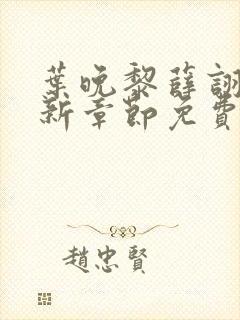 葉晚黎薛詡
新章節免費
趙忠賢